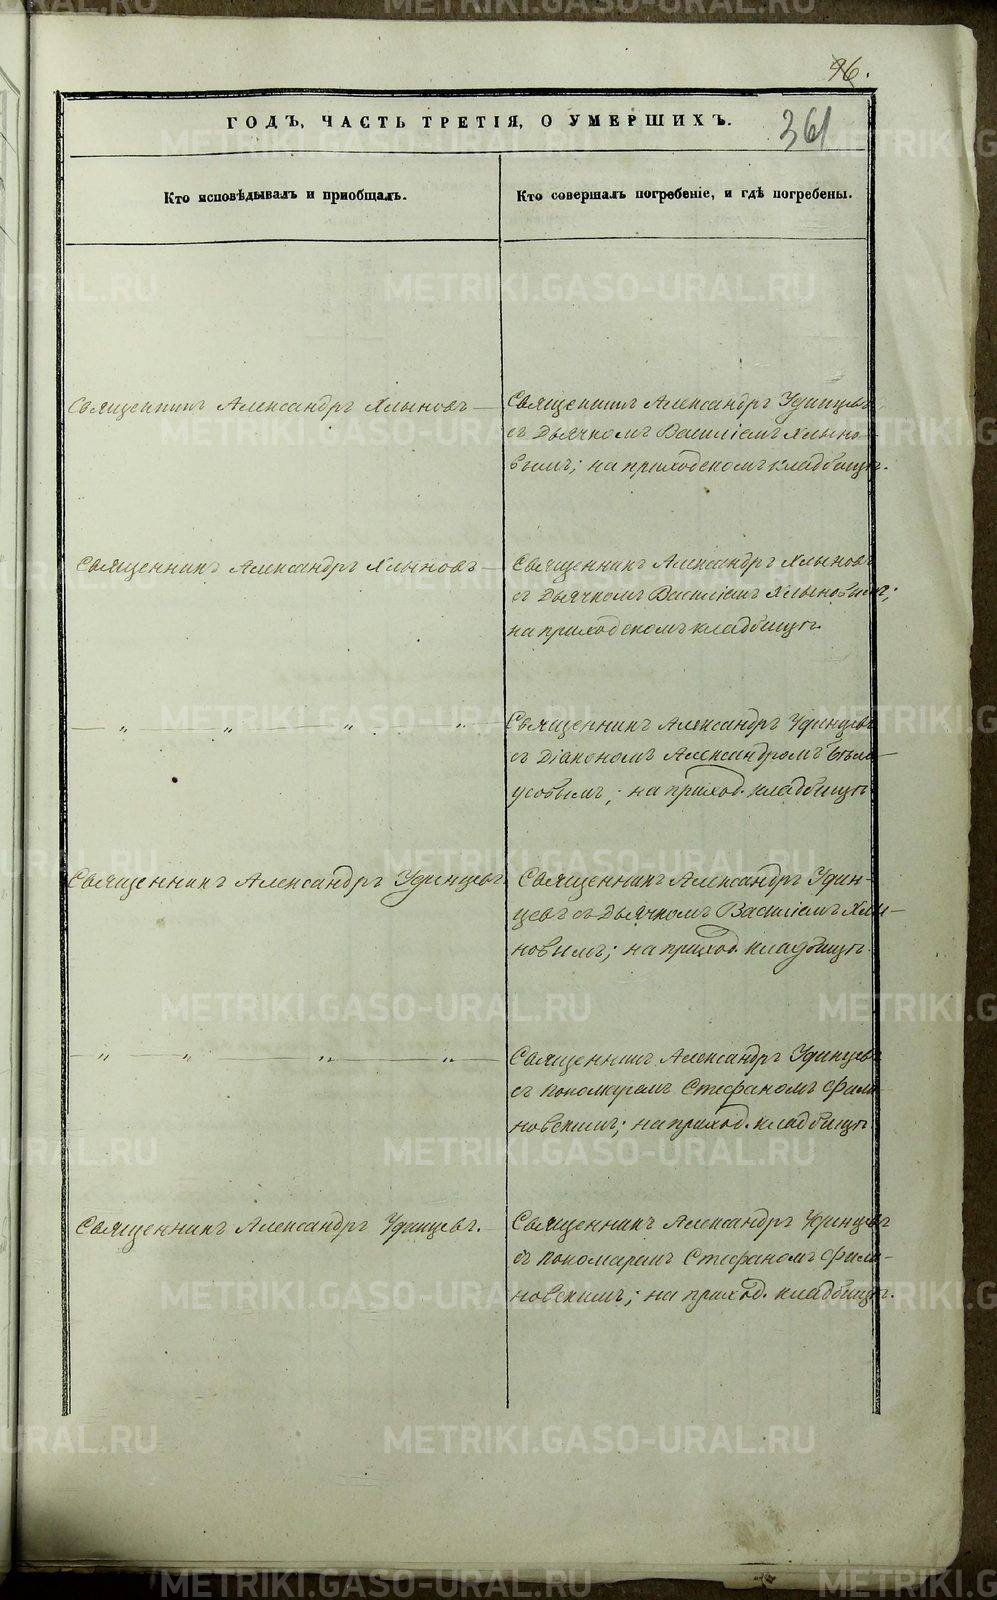 96.
361
ГОДЪ, ЧАСТЬ ТРЕТІЯ, О УМЕРШИХЪ.
Кто исповѣдывалъ и приобщалъ.
Кто совершалъ погребеніе, и гдѣ погребены.
Священникъ Александръ Хлыновъ —
Священникъ Александръ Удинцевъ
съ Дьячкомъ Василіемъ Хлыно-
вымъ; на приходскомъ кладбищѣ.
Священникъ Александръ Хлыновъ —
Священникъ Александръ Хлыновъ
съ Дьячкомъ Василіемъ Хлыновымъ;
на приходскомъ кладбищѣ.
— „ — „ — „ — „ —
Священникъ Александръ Удинцевъ
съ Діакономъ Александромъ Бѣло-
усовымъ; на приход. кладбищѣ
Священникъ Александръ Удинцевъ.
Священникъ Александръ Удин-
цевъ съ Дьячкомъ Василіемъ Хлы-
новымъ; на приход. кладбищѣ.
— „ — „ — „ — „ —
Священникъ Александръ Удинцевъ
съ пономаремъ Стефаномъ Фило-
новскимъ; на приход. кладбищѣ.
Священникъ Александръ Удинцевъ.
Священникъ Александръ Удинцевъ
съ пономаремъ Стефаномъ Фило-
новскимъ; на приход. кладбищѣ.
METRIKI.GASO-URAL.RU